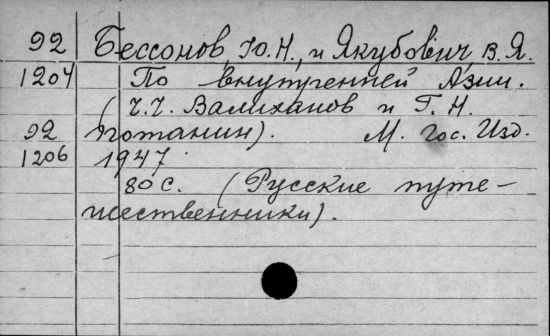 92 Бессонов Ю.Н., и Якубович, В.Я.
1204 По внутренней Азии.
(Ч.Ч. Валиханов и Г.Н.
92 Потанин). М. Гос. Изд.
1206 1947
80 с. (Русские путе-
шественники).